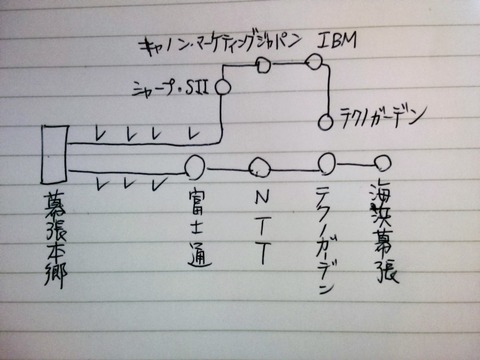 キャノン・マーケティングジャパン
IBM
シャープ・SII
テクノガーデン
幕張本郷
富士通
NTT
テクノガーデン
海浜幕張